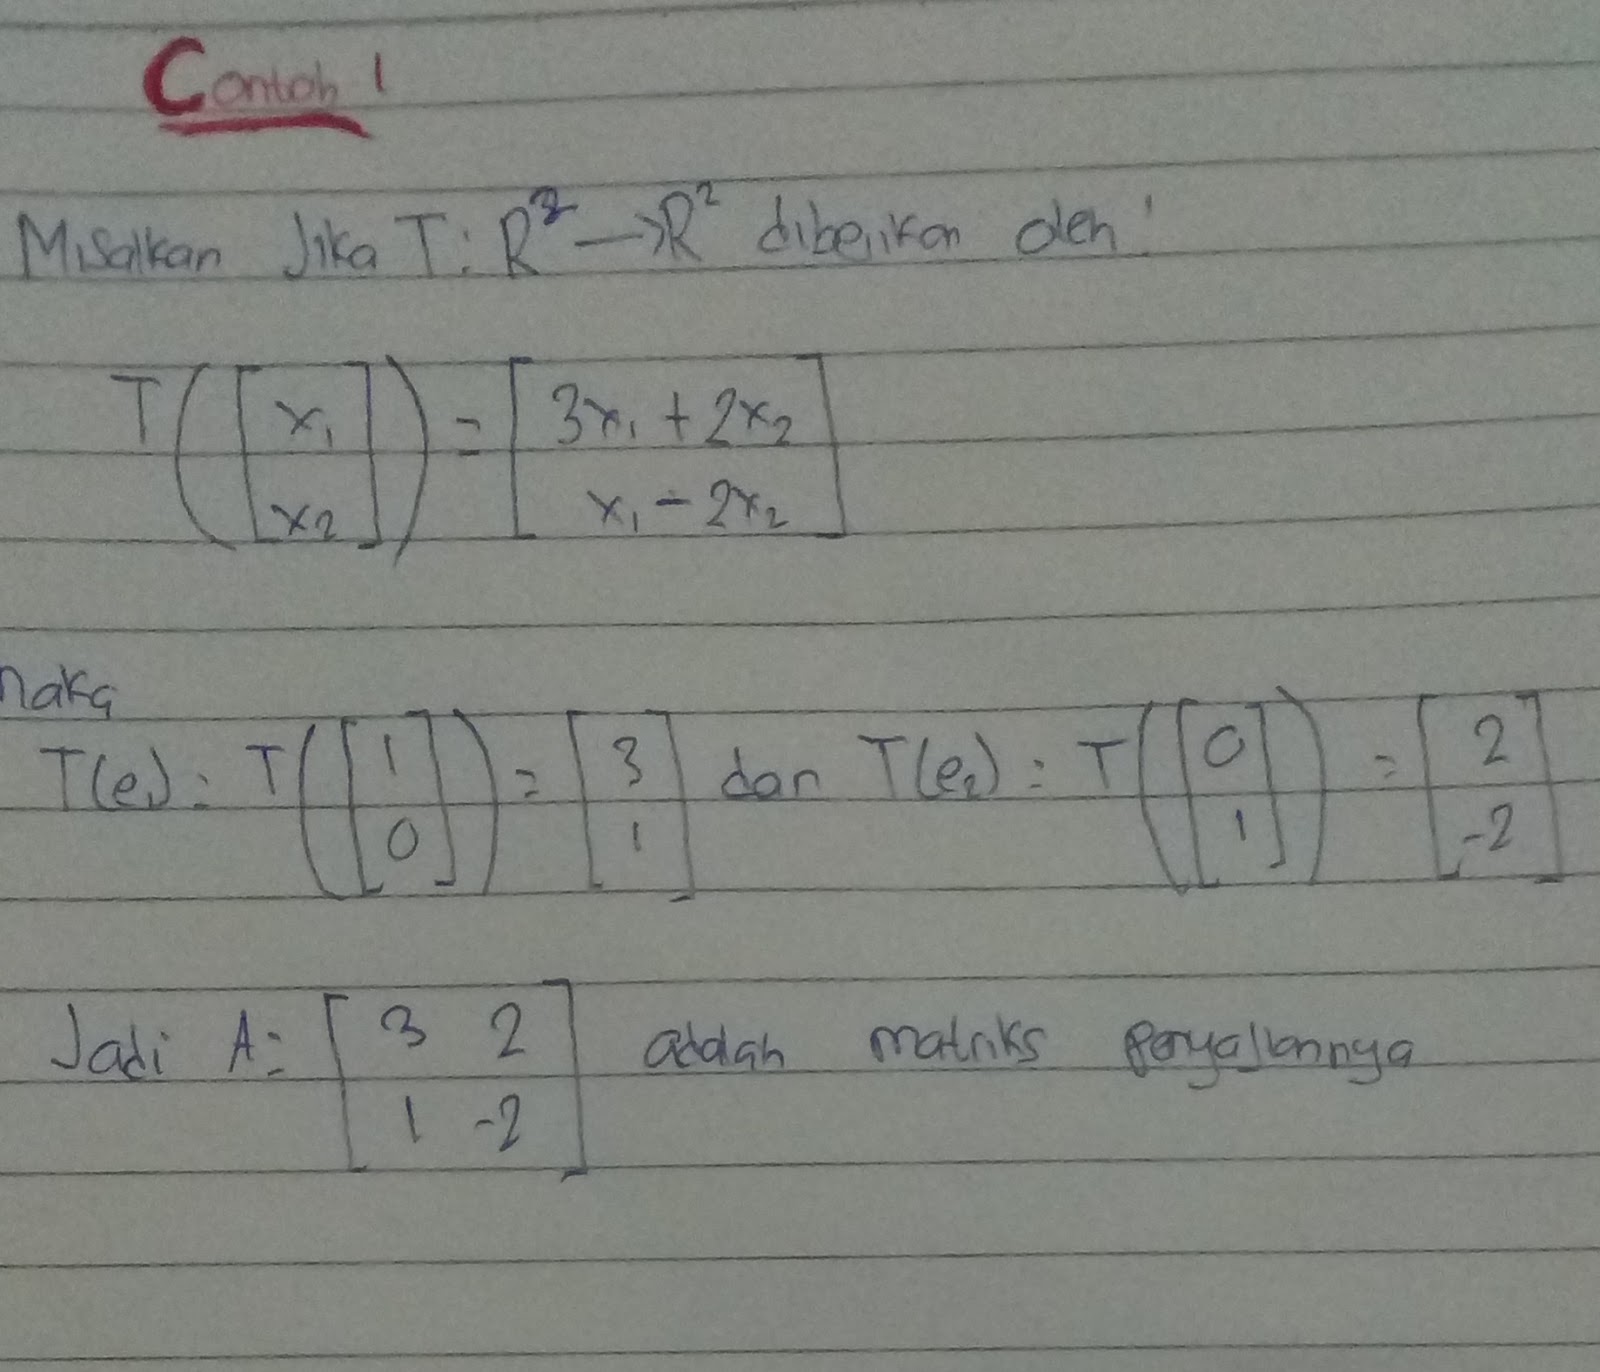 Contoh 1
Misalkan Jika T: R² → R² diberikan oleh:
T([x₁ x₂]) = [3x₁ + 2x₂ x₁ - 2x₂]
maka
T(e₁) = T([1 0]) = [3 1] dan T(e₂) = T([0 1]) = [2 -2]
Jadi A = [3 2 1 -2] adalah matriks penyajiannya